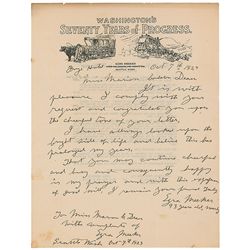 WASHINGTON'S
SEVENTY YEARS OF PROGRESS.
EZRA MEEKER
Frye Hotel Oct 9th 1923
Miss Marion Dean
It is with
pleasure I comply with your
request and congratulate you upon
the cheerful tone of your letter.
I have always looked upon the
bright side of life and believe this has
prolonged my
That you may continue cheerful
and busy and consequently happy
is my prayer and with this
of good will, I remain yours truly
Ezra Meeker
93 years old,
To Miss Marion Dean
With compliments of
Ezra Meeker
Seattle Wash Oct 9th 1923